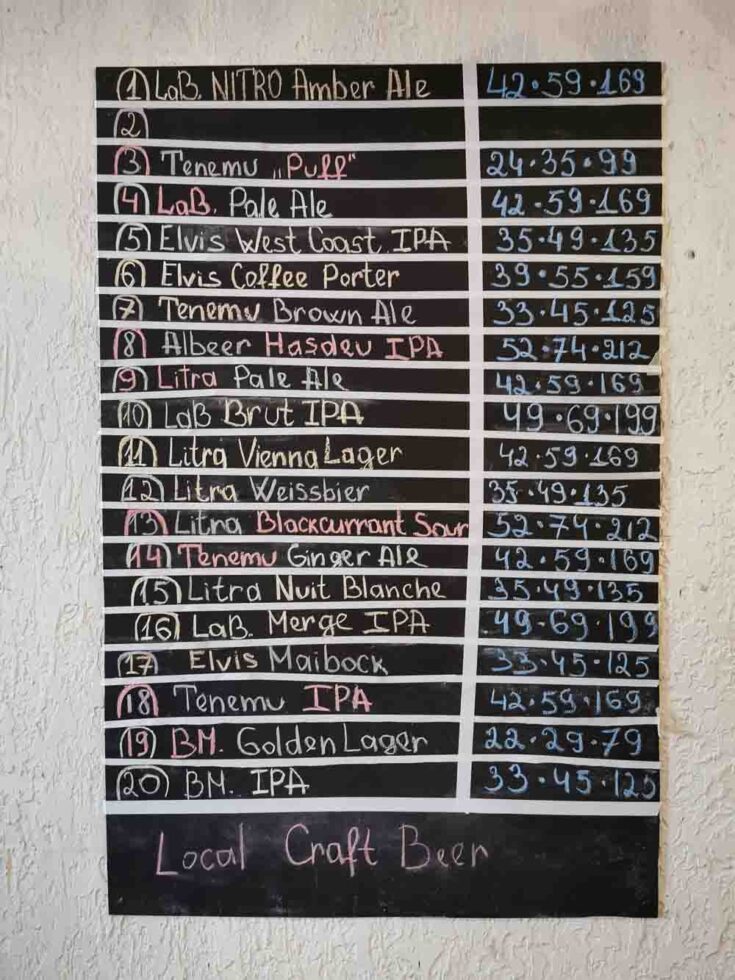 1 LaB. NITRO Amber Ale 42·59·169
2
3 Tenemu „Puff" 24·35·99
4 LaB. Pale Ale 42·59·169
5 Elvis West Coast IPA 35·49·135
6 Elvis Coffee Porter 39·55·159
7 Tenemu Brown Ale 33·45·125
8 Albeer Hasdeu IPA 52·74·212
9 Litra Pale Ale 42·59·169
10 LaB Brut IPA 49·69·199
11 Litra Vienna Lager 42·59·169
12 Litra Weissbier 35·49·135
13 Litra Blackcurrant Sour 52·74·212
14 Tenemu Ginger Ale 42·59·169
15 Litra Nuit Blanche 35·49·135
16 LaB. Merge IPA 49·69·199
17 Elvis Maibock 33·45·125
18 Tenemu IPA 42·59·169
19 BM. Golden Lager 22·29·79
20 BM. IPA 33·45·125
Local Craft Beer